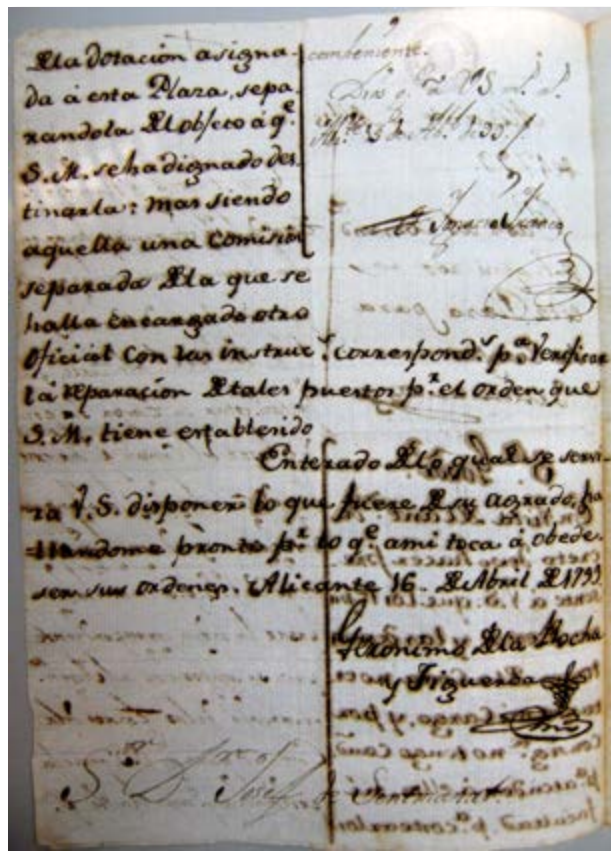 dela dotación asigna-
da à esta Plaza, sepa-
randola del objeto à q.e
S.M. se ha dignado des-
tinarla: mas siendo
aquella una Comision
separada dela que se
halla encargado otro
Oficial con las instruc.s correspond.s p.a Verificar
la reparacion de tales puestos p.r el orden que
S.M. tiene establecido
Enterado delo qual se servi-
ra V.S. disponer lo que fuere de su agrado, ha
llandome pronto p.r lo q.e ami toca à obede-
ser sus ordenes. Alicante 16 de Abril de 1799
Geronimo dela Rocha
y Figueroa
combeniente.
Dios g. à VS
S.or D.n Josef de Sentmanat